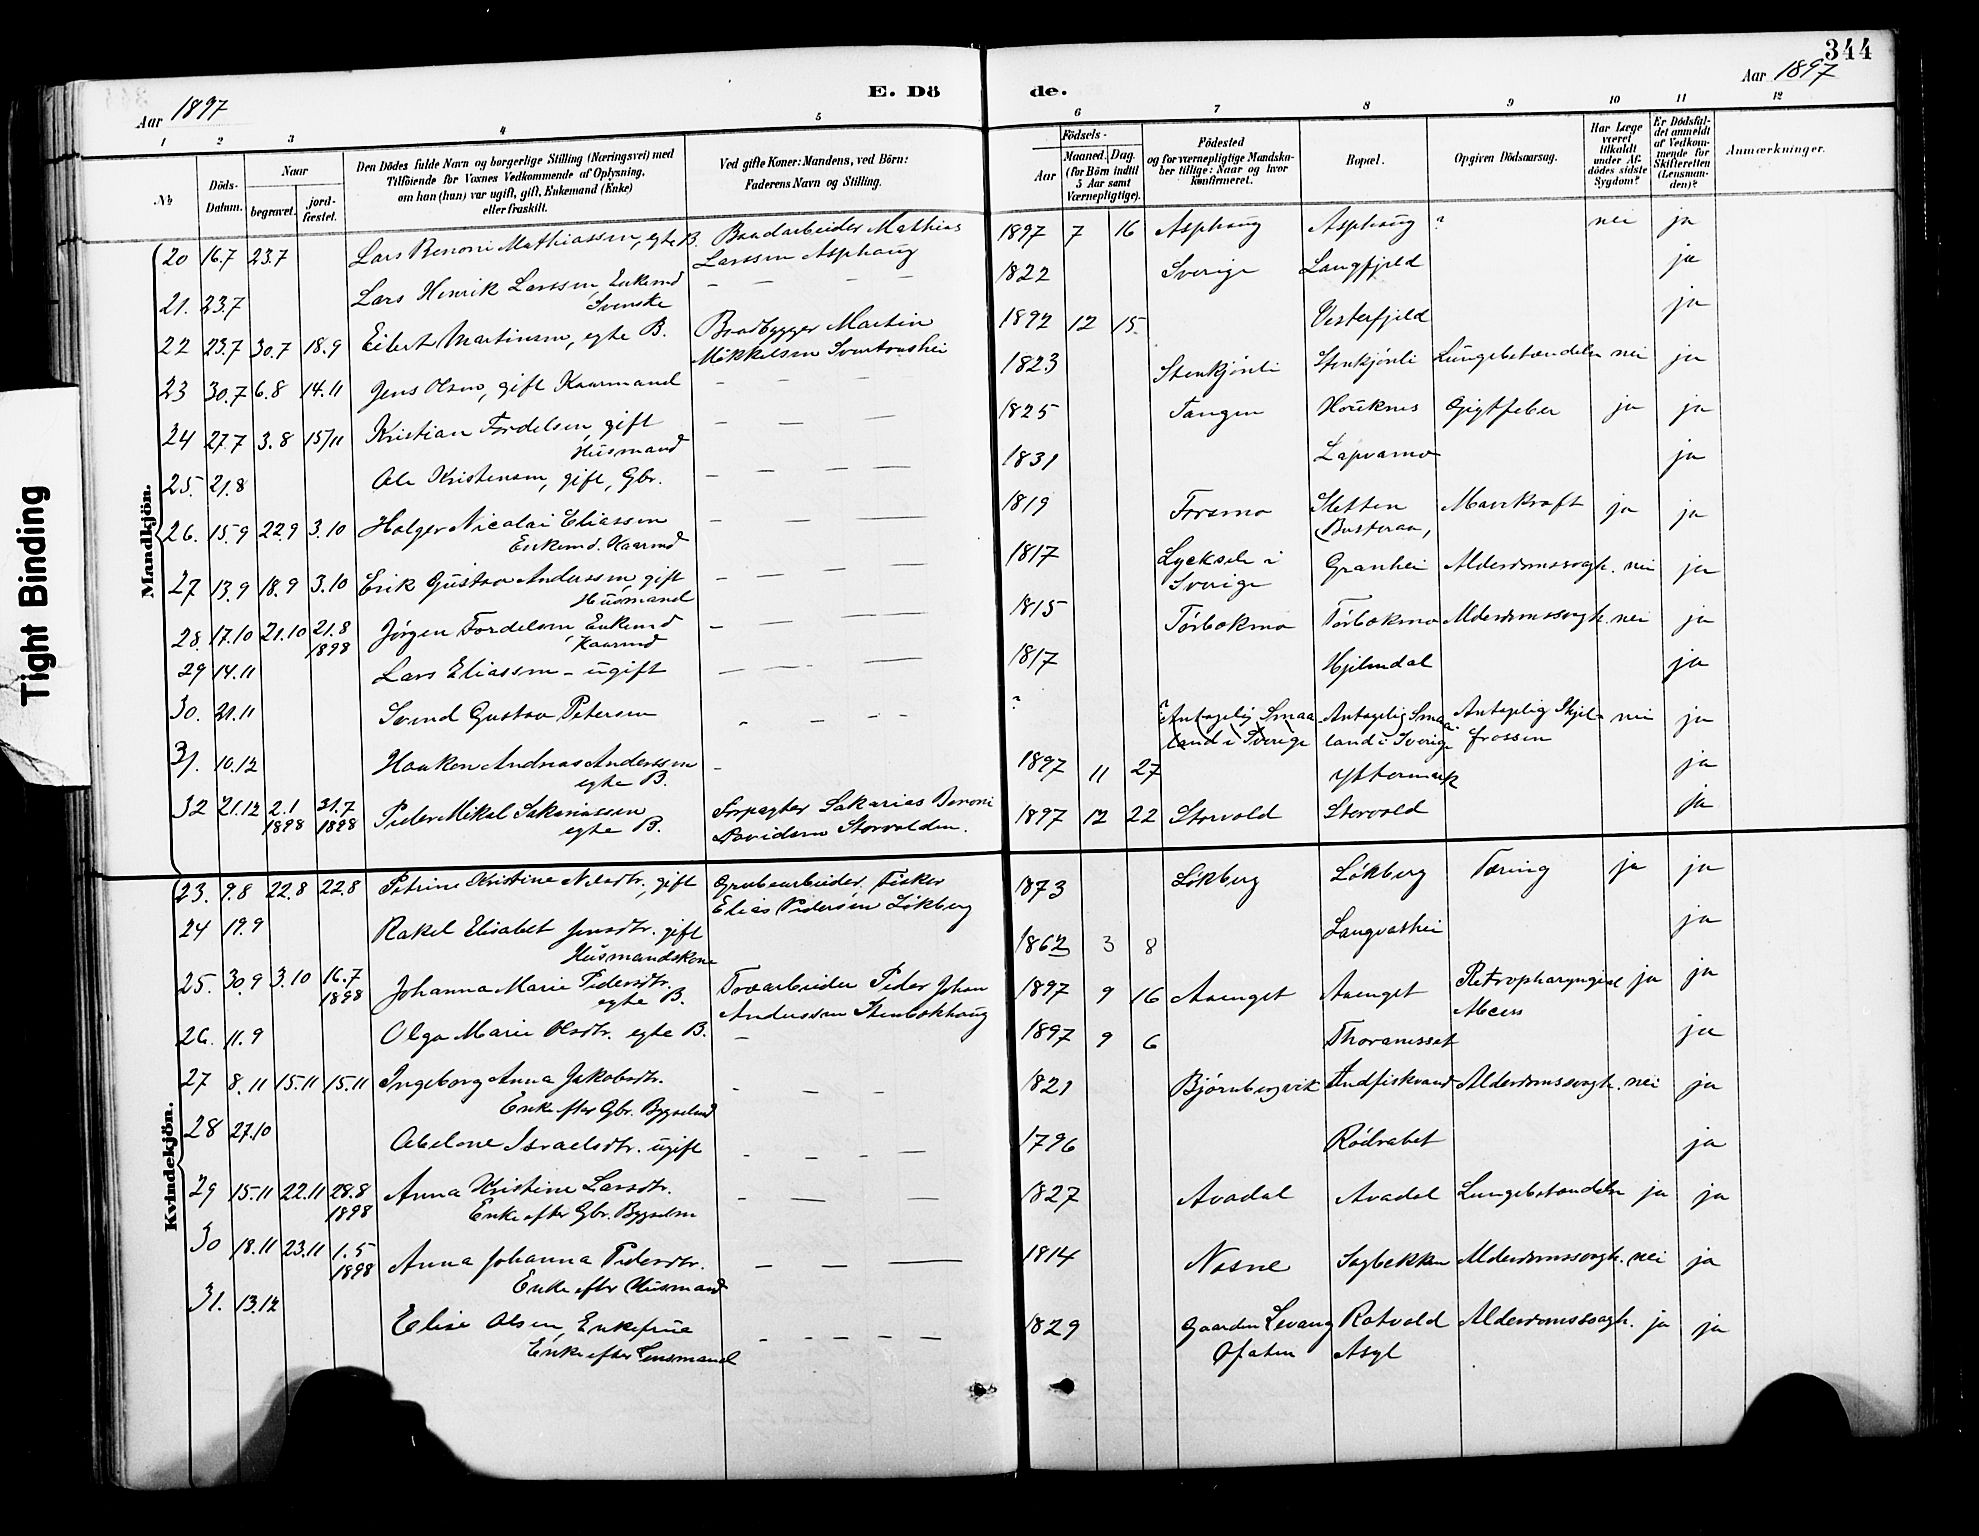 344
Aar 1897
E. Dö
de.
Aar 1897
1 2 3 4 5 6 7 8 9 10 11 12
No
Döds-Datum.
Naar
begravet.
jord-fæstet.
Den Dödes fulde Navn og borgerlige Stilling (Næringsvei) med
Tilföiende for Voxnes Vedkommende af Oplysning,
om han (hun) var ugift, gift, Enkemand (Enke)
eller fraskilt.
Ved gifte Koner: Mandens, ved Börn:
Faderens Navn og Stilling.
Födsels-
Aar
Maaned. Dag.
(for Börn indtil
5 Aar samt
Værnepligtige).
Födested
og for værnepligtige Mandska-
ber tillige: Naar og hvor
konfirmeret.
Bopæl.
Opgiven Dödsaarsag.
Har Læge
været
tilkaldt
under Af-
dödes sidste
Sygdom?
Er Dödsfal-
det anmeldt
af Vedkom-
mende for
Skifteretten
(Lensman-
den)?
Anmærkninger.
Tight Binding
Mandkjön.
20 16.7 23.7 Lars Benoni Mathiassen, egte B. Baadarbeider Mathias 1897 7 16 Asphaug Asphaug ? nei ja
Larssen Asphaug
21. 23.7 Lars Henrik Larssen, Enkemd – – – – 1822 Sverige Langfjeld ja
Svenske
22 23.7 30.7 18.9 Eilert Martinsen, egte B. Baadbygger Martin 1892 12 15. Vesterfjeld ja
Mikkelsen Svartvashei
23 30.7 6.8 14.11 Jens Olsen, gift Kaarmand – – – 1823 Stenkjönli Stenkjönli Lungebetændelse nei ja
24 27.7 3.8 15/11 Kristian Fordelsen, gift – – – 1825 Tangen Hauknes Gigtfeber ja ja
Husmand
25. 21.8 Ole Kristensen, gift, Gbr. – – – – 1831 Lapvamo ja
26. 15.9 22.9 3.10 Holger Nicolai Eliassen – – – – 1819 Forsmo Sletten Mavekræft ja ja
Enkemd. Kaarmd Busteraa,
27 13.9 18.9 3.10 Erik Gustav Anderssen, gift – – – – 1817 Lycksele i Granhei Alderdomssvagh. nei ja
Husmand Sverige
28. 17.10 21.10 21.8 Jørgen Fordelsen Enkemd – – – – 1815 Tørbækmo Tørbækmo Alderdomssvagh. nei ja
1898 Kaarmd
29 14.11 Lars Eliassen – ugift – – – – 1817 Hjelmdal ja
30. 21.11 Svend Gustav Petersen – – – – ? ? Antagelig Smaa- Antagelig Smaa- Antagelig Ihjel- nei ja
land i Sverige land i Sverige frossen
31. 10.12 Haakon Andreas Anderssen – 1897 11 27 Yttermark ja
egte B.
32 21.12 2.1 31.7 Peder Mikal Sakariassen Forpagter Sakarias Benoni 1897 12 22 Storvold Storvold ja
1898 1898 egte B. Davidsen Storvolden.
Kvindekjön.
23. 9.8 22.8 22.8 Petrine Kristine Nilsdtr., gift Grubearbeider, Fisker 1873 Løkberg Løkberg Tæring ja ja
Elias Pedersen Løkberg
24 19.9 Rakel Elisabet Jensdtr. gift 1862 3 8 Langvashei ja
Husmandskone
25. 30.9 3.10 16.7 Johanna Marie Pedersdtr. Træarbeider Peder Johan 1897 9 16 Avenget Avenget Retropharyngial ja ja
1898 egte B. Anderssen Stenbækhaug
26. 11.9 Olga Marie Olsdtr. egte B. – 1897 9 6 ja
27 8.11 15.11 15.11 Ingeborg Anna Jakobsdtr. – – – 1821 Bjørnbergvik Andfiskvand Alderdomssvagh. nei ja
Enke efter Gbr. Bygselmd
28 27.10 Abelone Israelsdtr. ugift – – – – 1796 Rødvabet ja
29 15.11 22.11 28.8 Anna Kristine Larsdtr. – – – 1827 Avadal Avadal Lungebetændelse ja ja
1898 Enke efter Gbr. Bygselm
30 18.11 23.11 1.5 Anna Johanna Pedersdtr. – – – 1814 Nesne Sagbekken Alderdomssvagh. nei ja
1898 Enke efter Husmand
31. 13.12 Elise Olsen, Enkefrue – – – – – 1829 Gaarden Levang Ratvold Alderdomssvagh. ja ja
Enke efter Lensmand Ofoten Asyl